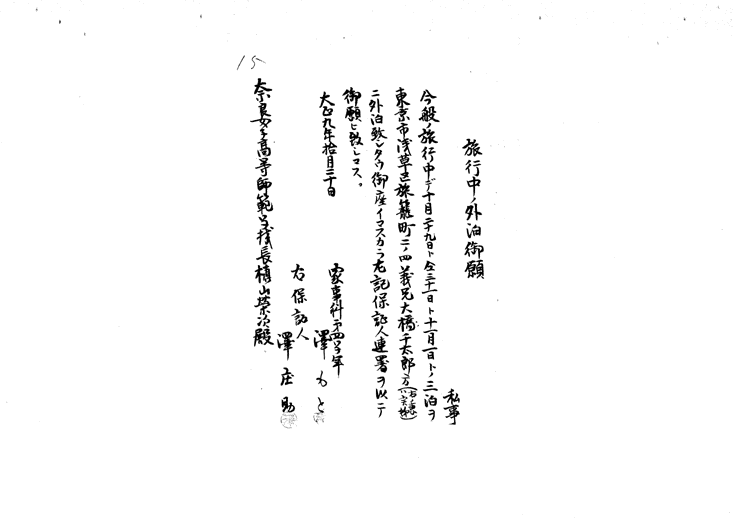 15
旅行中ノ外泊御願
私事
今般ノ旅行中デ十月二十九日ト仝三十一日ト十一月一日トノ三泊ヲ
東京市浅草区旅籠町二ノ四義兄大橋千太郎方
ニ外泊致シタウ御座イマスカラ右記保証人連署ヲ以テ
御願ヒ致シマス。
大正九年拾月二十日
家事科第四学年
澤もと
右保証人
澤庄助
奈良女子高等師範学校長槙山栄次殿